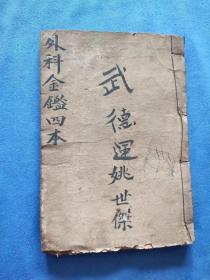 外科金鑑四本
武德運姚世傑